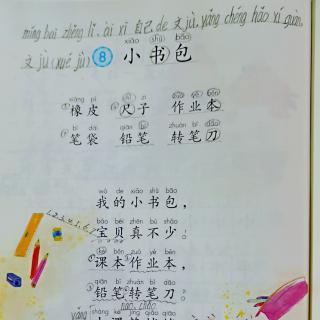 míng bai zhěng lǐ, ài xī 自己 de 文jù, yǎng chéng hǎo xí guàn.
文jù (xué jù)
xiǎo shū bāo
8 小书包
xiàng pí chǐ zuò yè běn
①橡皮 ②尺子 ③作业本
bǐ dài qiān bǐ zhuàn bǐ dāo
④笔袋 铅笔 转笔刀
wǒ de xiǎo shū bāo
我的小书包,
bǎo bèi zhēn bù shǎo
宝贝真不少。
kè běn zuò yè běn
课本作业本,
qiān bǐ zhuàn bǐ dāo
铅笔转笔刀。